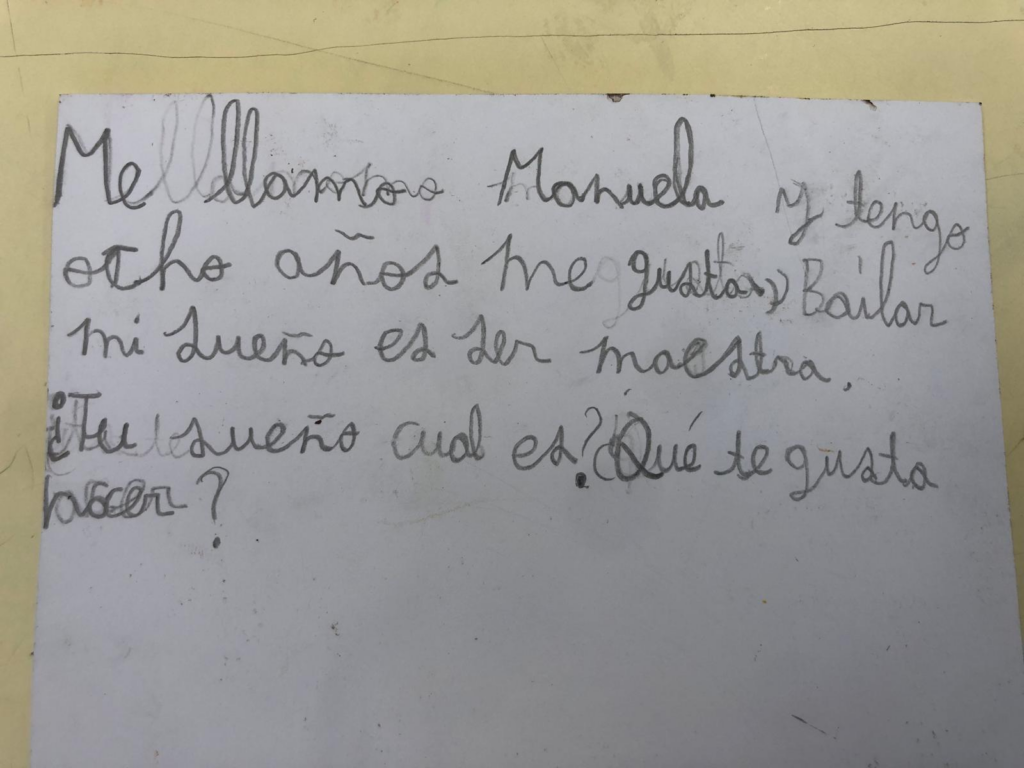 Me llamo Manuela y tengo
ocho años me gusta Bailar
mi sueño es ser maestra.
¿Tu sueño cual es? ¿Qué te gusta
hacer?